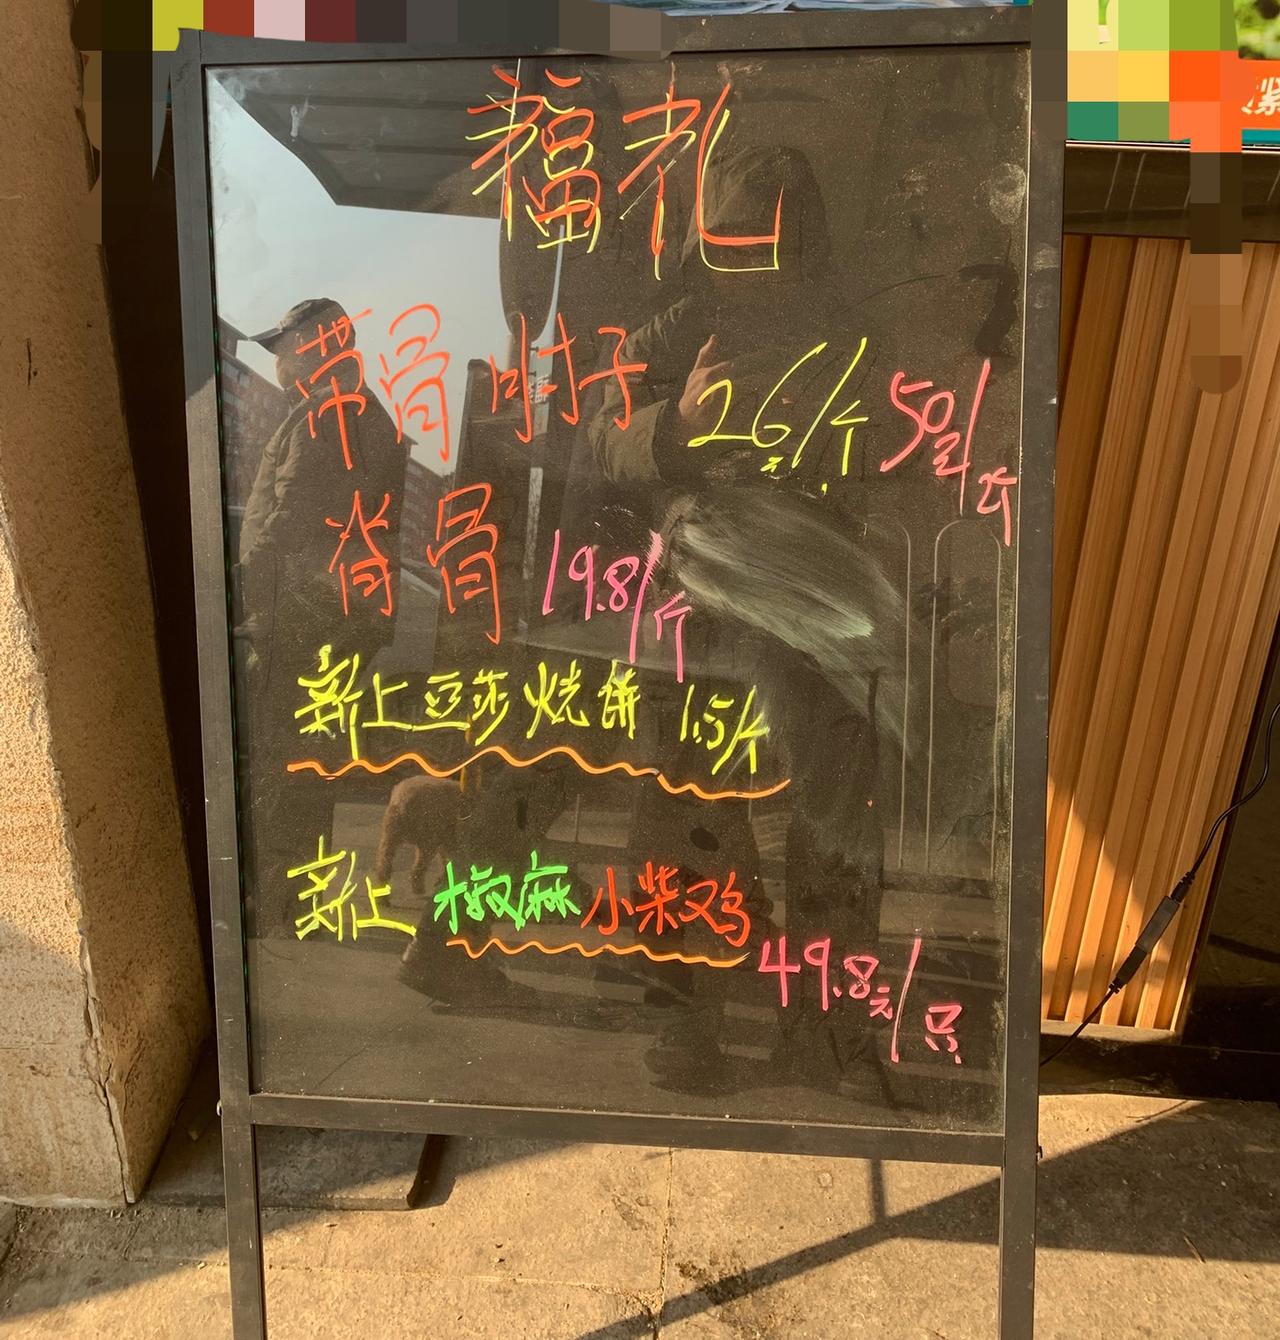 福礼
带骨肘子 26元/个 50元/2个
脊骨 19.8/斤
新上豆莎烧饼 1.5/个
新上 椒麻小柴鸡
49.8元/只